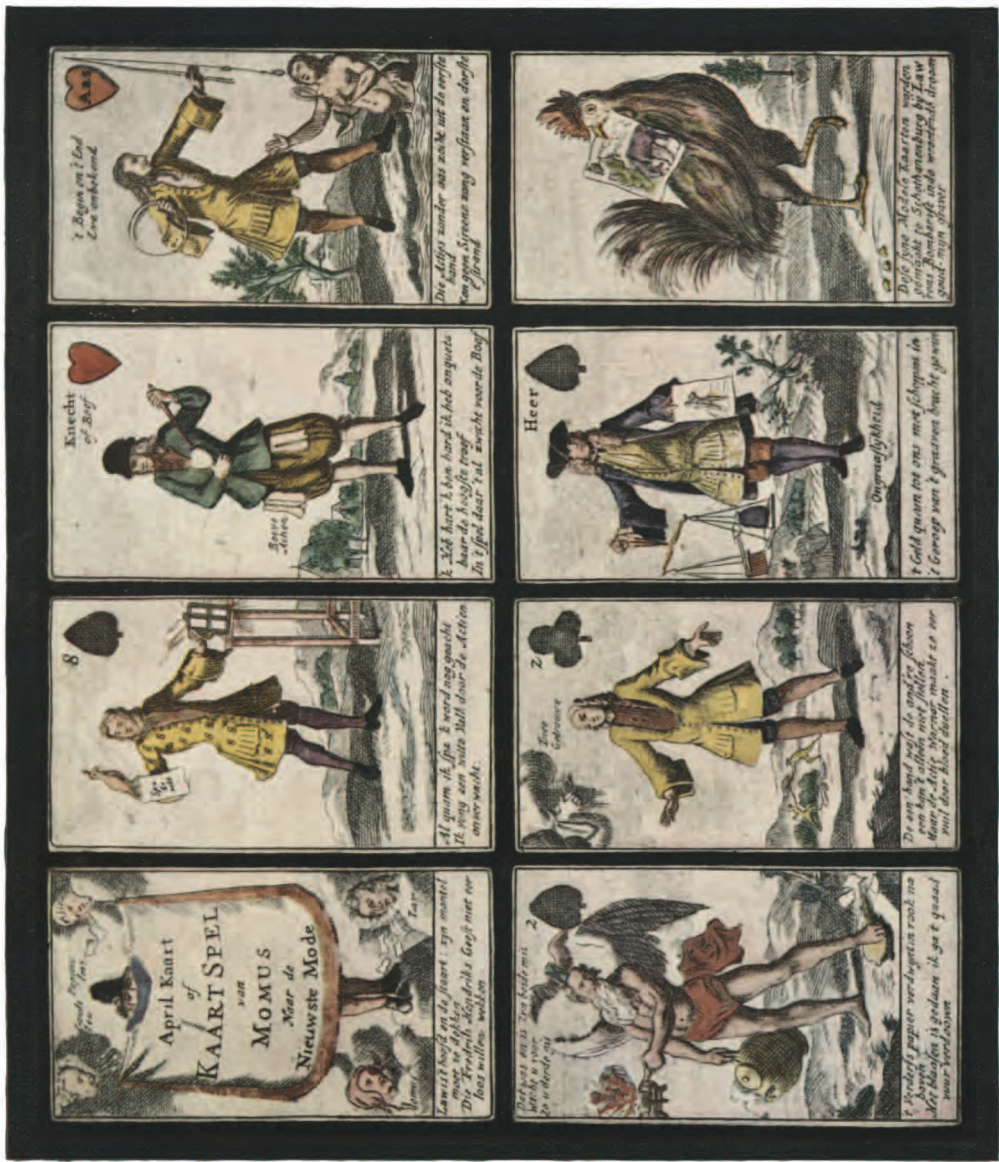 April Kaart
of
KAARTSPEL
van
MOMUS
Naar de
Nieuwste Mode
Law is 't hoofd en de staart: zijn mantel
moet ze dekken
Die Fredrik Hendriks Geest niet eer
loos willen wekken
8
Al quam ik spa 'k word nog geacht
Ik ving een witte Valk door de Actien
onverwacht.
Knecht
of Boef
Boeve
Actien
'k Heb hart 'k ben hard ik heb onquets
baar de hoogste troef
In 't spel daar 't al zwicht voor de Boef
Aas
't Begin en 't End
Even onbekend
Die Actys zonder aas zocht uit de eerste
hand
Kon geen Sireene zang verstaan en dorste
't strand
2
Dat was en is zyn beide mis
wacht u voor
zo u derde mis
't Verderf papier verdwynt in rook na
boven
Het blaasen is gedaan ik ga 't quaad
vuur verdooven
2
Twee
Gedrooge
De een hand wast de and're schoon
een kan 't alleen niet stellen
Maar de Actie Warmar maakt ze eer
vuil door bloed dwellen.
Heer
Ongraaflykheid
't Geld quam tot ons met schippen in
't Geroep van 't graaven bracht gewin
Dese syne Modele Kaarten worden
gemaakt te Schotsenburg by Law
rens Bombarist inde wroetende droom
goud-mijn graver